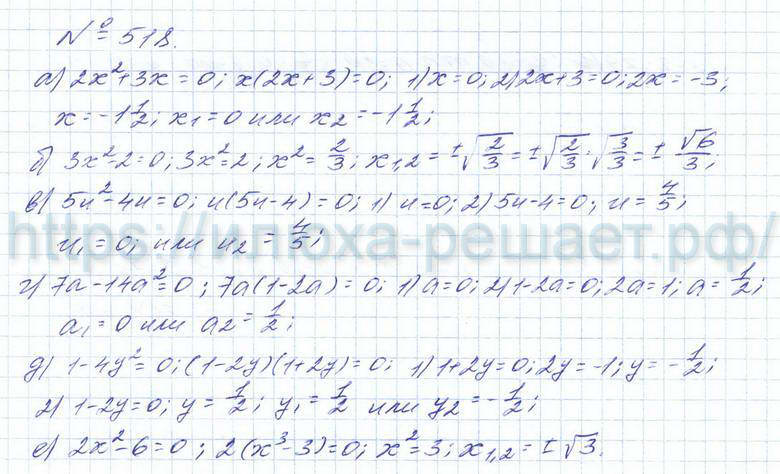 № 518.
а) 2x²+3x=0; x(2x+3)=0; 1) x=0; 2) 2x+3=0; 2x=-3;
x=-1 1/2; x₁=0 или x₂=-1 1/2;
б) 3x²-2=0; 3x²=2; x²=2/3; x₁,₂=±√(2/3)=±√(2/3)·√(3/3)=±√6/3;
в) 5u²-4u=0; u(5u-4)=0; 1) u=0; 2) 5u-4=0; u=4/5;
https://илюха-решает.рф/
u₁=0; или u₂=4/5;
г) 7a-14a²=0; 7a(1-2a)=0; 1) a=0; 2) 1-2a=0; 2a=1; a=1/2;
a₁=0 или a₂=1/2;
д) 1-4y²=0; (1-2y)(1+2y)=0; 1) 1+2y=0; 2y=-1; y=-1/2;
2) 1-2y=0; y=1/2; y₁=1/2 или y₂=-1/2;
е) 2x²-6=0; 2(x³-3)=0; x²=3; x₁,₂=±√3.